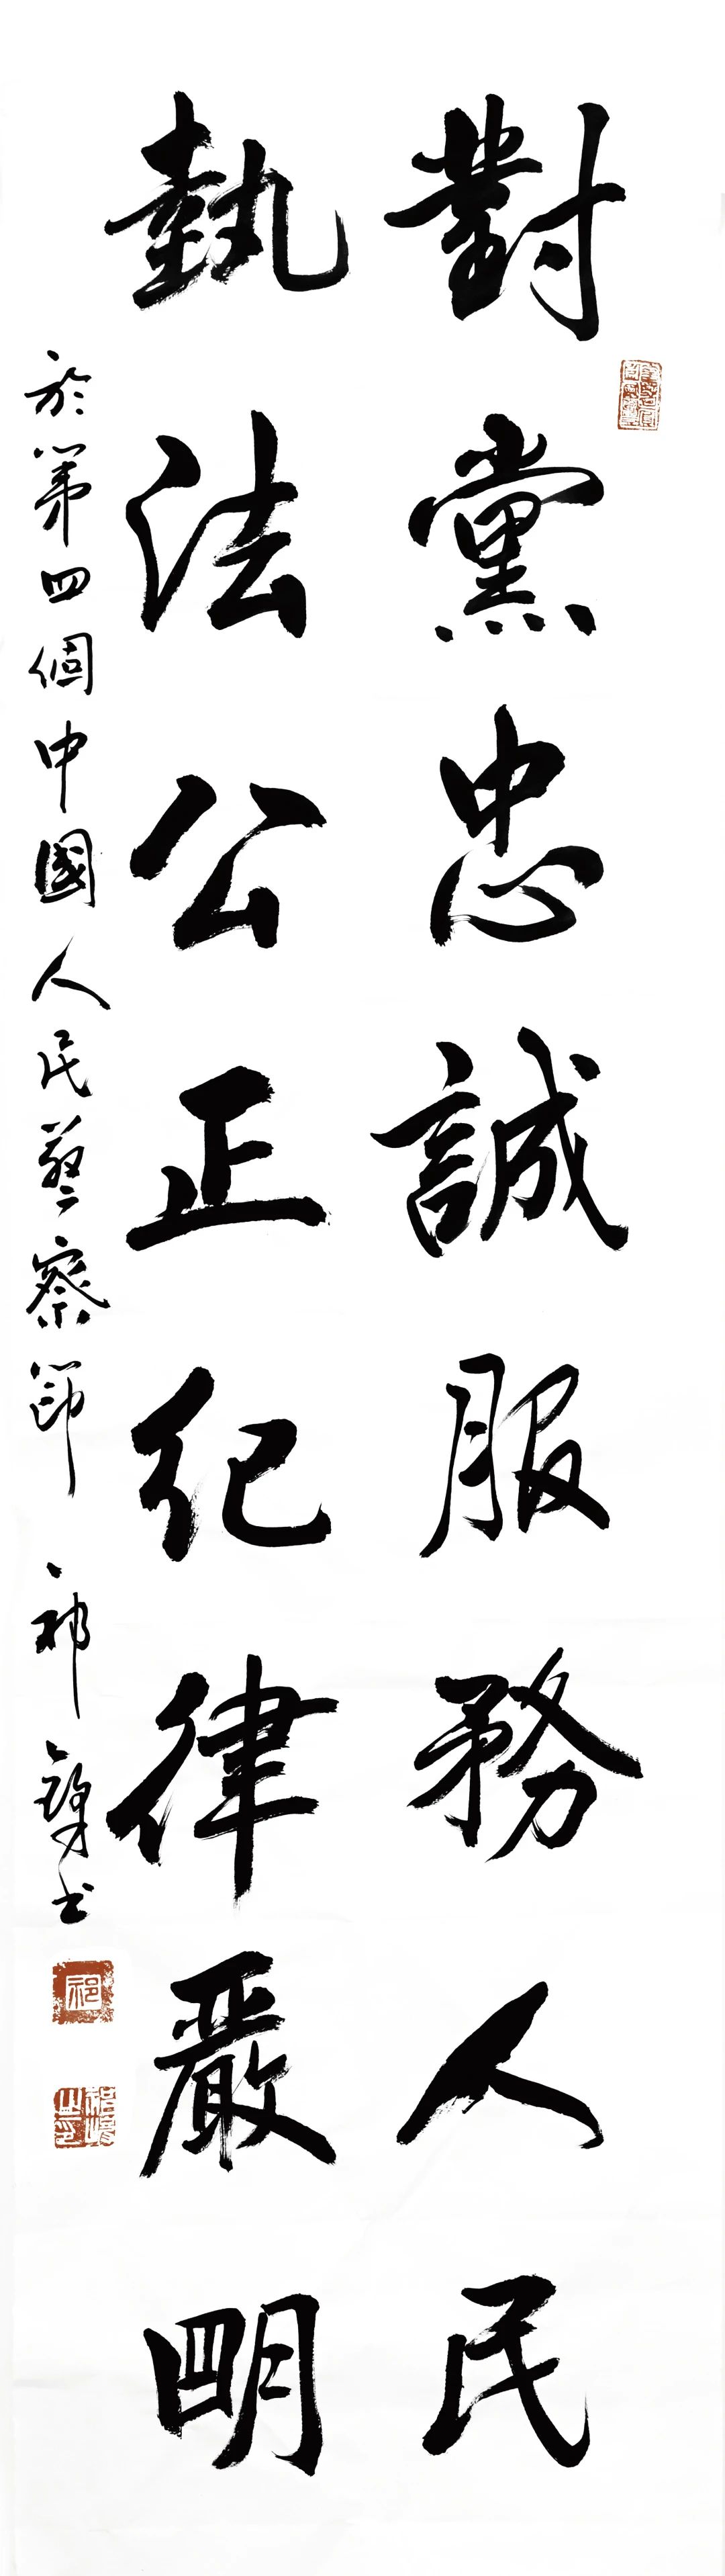 對黨忠誠服務人民
執法公正紀律嚴明
於第四個中國人民警察節 祁
書
祁